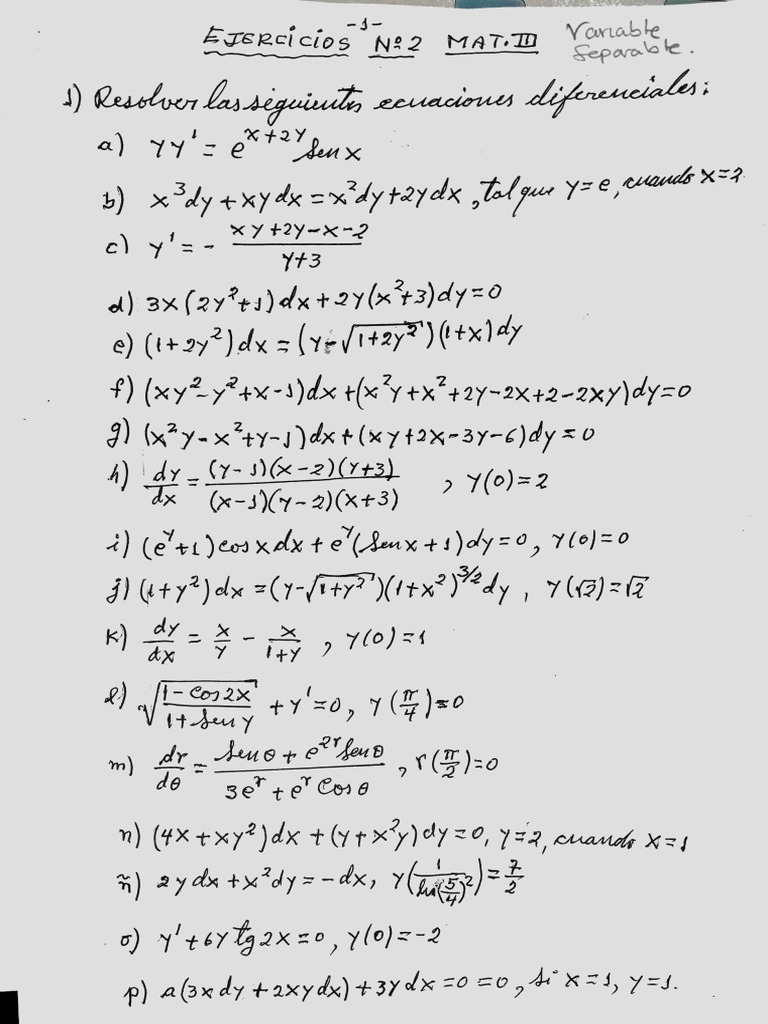 -1-
EJERCICIOS Nº2 MAT.III Variable Separable.
1) Resolver las siguientes ecuaciones diferenciales:
a) yy' = e^(x+2y) sen x
b) x³dy + xydx = x²dy + 2ydx, tal que y=e, cuando x=2.
c) y' = - (xy+2y-x-2)/(y+3)
d) 3x(2y²+1)dx + 2y(x²+3)dy = 0
e) (1+2y²)dx = (y-√(1+2y²))(1+x)dy
f) (xy²-y²+x-1)dx + (x²y+x²+2y-2x+2-2xy)dy = 0
g) (x²y-x²+y-1)dx + (xy+2x-3y-6)dy = 0
h) dy/dx = (y-1)(x-2)(y+3)/(x-1)(y-2)(x+3) , y(0)=2
i) (e^y+1)cosxdx + e^y(senx+1)dy=0, y(0)=0
j) (1+y²)dx = (y-√(1+y²))(1+x²)^(3/2)dy, y(√3)=√2
k) dy/dx = x/y - x/(1+y) , y(0)=1
l) √((1-cos2x)/(1+seny)) + y'=0, y(π/4)=0
m) dr/dθ = (senθ + e^(2r)senθ)/(3e^r + e^r cosθ) , r(π/2)=0
n) (4x+xy²)dx + (y+x²y)dy=0, y=2, cuando x=1
ñ) 2ydx + x²dy = -dx, y(1/ln(5/4)²) = 7/2
o) y'+6y tg2x=0, y(0)=-2
p) a(3xdy + 2xydx) + 3ydx =0 =0, si x=1, y=1.